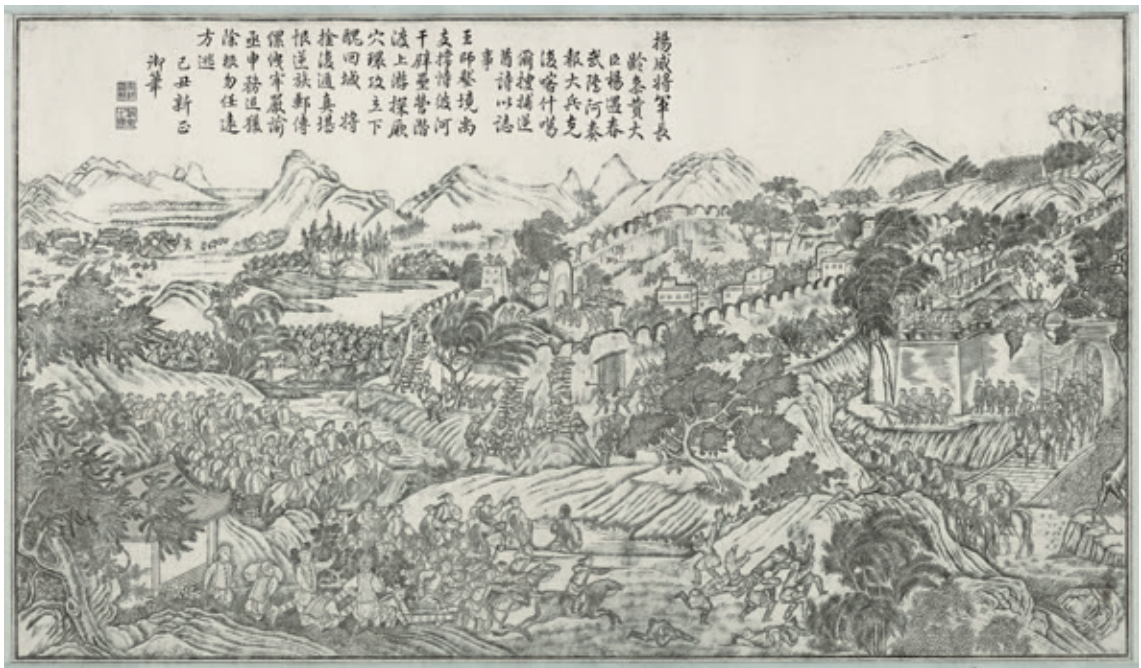 揚威將軍長
齡參贊大
臣楊遇春
武隆阿奏
報大兵克
復喀什噶
爾捕逆
酋詩以誌
事
王師壓境尚
支撐恃彼河
干壘營潛
渡上游探厥
穴環攻立下
醜回城將
復遁真堪
恨逆族郵傳
牢嚴諭
亟申務追獲
除根勿任遠
方逃
己丑新正
御筆